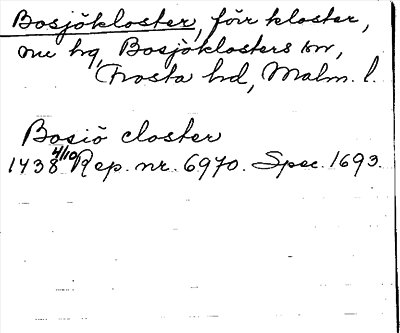 Bosjökloster, förr kloster,
nu hg, Bosjöklosters sn,
Frosta hd, Malm. l.
Bosiö closter
1438 4/10 Rep. nr. 6970. Spec. 1693.